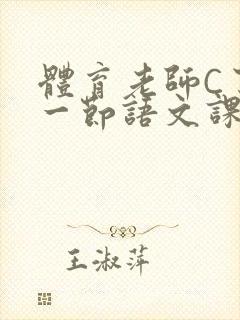 體育老師C
一節語文課
王淑萍